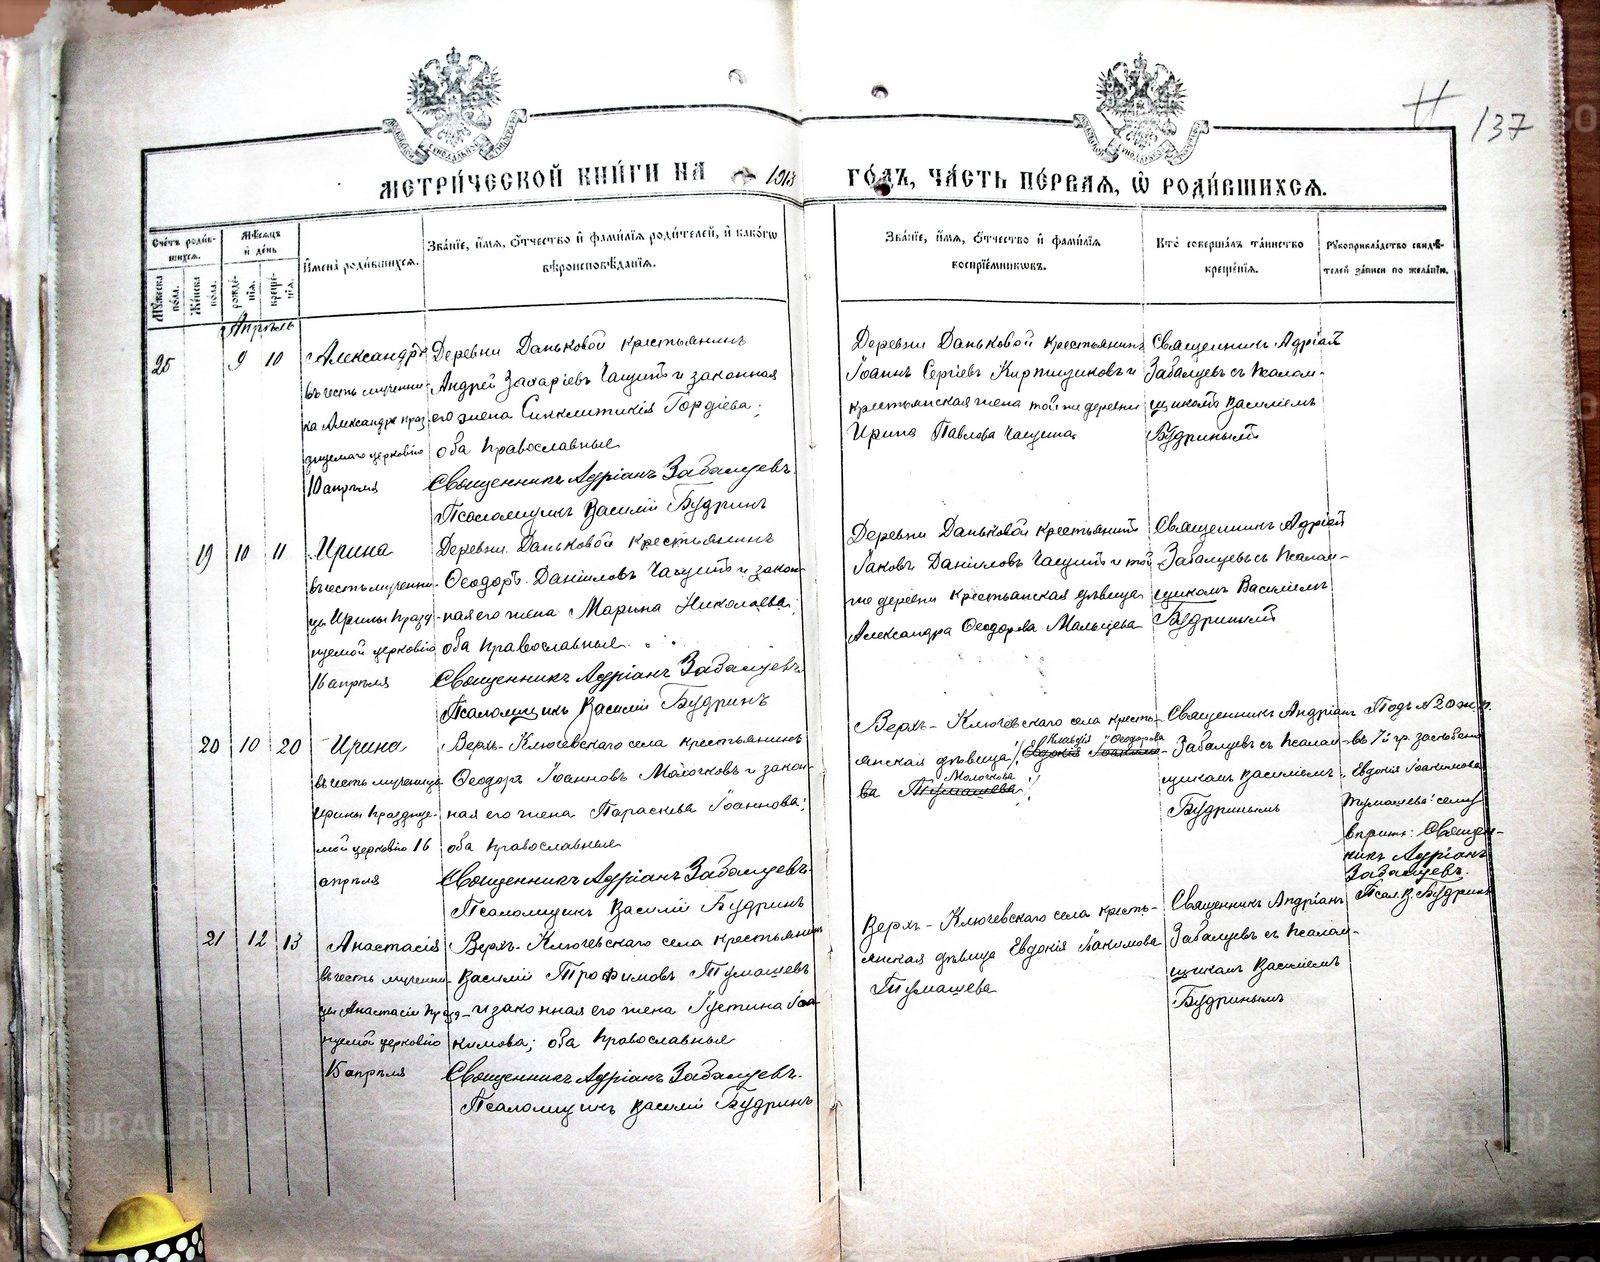 137
МЕТРИ́ЧЕСКОЙ КНИ́ГИ НА 1913 ГО́ДЪ, ЧА́СТЬ ПЕ́РВАЯ, Ѡ РОДИ́ВШИХСЯ.
Сче́тъ роди́в-
шихся.
Мꙋ́жеска
по́ла.
Же́нска
по́ла.
Мѣ́сяцъ
и де́нь
рожде́-
нїя.
креще́-
нїя.
Имена̀ роди́вшихся.
Зва́нїе, и́мя, о́тчество и фами́лїя роди́телей, и како́гѡ
вѣроисповѣ́данїя.
Зва́нїе, и́мя, о́тчество и фами́лїя
воспрїе́мникѡвъ.
Кто̀ соверша́лъ та́инство
креще́нїя.
Рꙋкоприкла́дство свидѣ́-
телей за́писи по жела́нїю.
Апрѣль
25 9 10
Александръ
въ честь мучени-
ка Александра праз-
днуемаго церковію
10 апрѣля
Деревни Даньковой крестьянинъ
Андрей Захаріевъ Чащинъ и законная
его жена Синклитикія Гордіева;
оба православные
Священникъ Адріанъ Забалуевъ
Псаломщикъ Василій Будринъ
Деревни Даньковой крестьянинъ
Іоаннъ Сергіевъ Кирпищиковъ и
крестьянская жена той же деревни
Ирина Павлова Чащина
Священникъ Адріанъ
Забалуевъ съ псалом-
щикомъ Василіемъ
Будринымъ
19 10 11
Ирина
въ честь мучени-
цы Ирины празд-
нуемой церковію
16 апрѣля
Деревни Даньковой крестьянинъ
Ѳеодоръ Даніиловъ Чащинъ и закон-
ная его жена Марина Николаева;
оба православные
Священникъ Адріанъ Забалуевъ
Псаломщикъ Василій Будринъ
Деревни Даньковой крестьянинъ
Іаковъ Даніиловъ Чащинъ и той
же деревни крестьянская дѣвица
Александра Ѳеодорова Мальцева
Священникъ Адріанъ
Забалуевъ съ псалом-
щикомъ Василіемъ
Будринымъ
20 10 20
Ирина
въ честь мученицы
Ирины празднуе-
мой церковію 16
апрѣля
Верхъ-Ключевскаго села крестьянинъ
Ѳеодоръ Іоанновъ Молочковъ и закон-
ная его жена Параскева Іоаннова;
оба православные
Священникъ Адріанъ Забалуевъ
Псаломщикъ Василій Будринъ
Верхъ-Ключевскаго села кресть-
Клавдія Ѳеодорова
янская дѣвица Евдокія Іоакимо-
Молочкова
ва Тумашева
Священникъ Андріанъ
Забалуевъ съ псалом-
щикомъ Василіемъ
Будринымъ
Подъ № 20 ж. п.
въ 7й гр. слова
Евдокія Іоакимова
Тумашева: сему
Священ-
никъ Адріанъ
Забалуевъ.
Псал. В. Будринъ
21 12 13
Анастасія
въ честь мучени-
цы Анастасіи празд-
нуемой церковію
15 апрѣля
Верхъ-Ключевскаго села крестьянинъ
Василій Трофимовъ Тумашевъ
и законная его жена Іустина Іоа-
кимова; оба православные
Священникъ Адріанъ Забалуевъ.
Псаломщикъ Василій Будринъ
Верхъ-Ключевскаго села кресть-
янская дѣвица Евдокія Іоакимова
Тумашева
Священникъ Андріанъ
Забалуевъ съ псалом-
щикомъ Василіемъ
Будринымъ